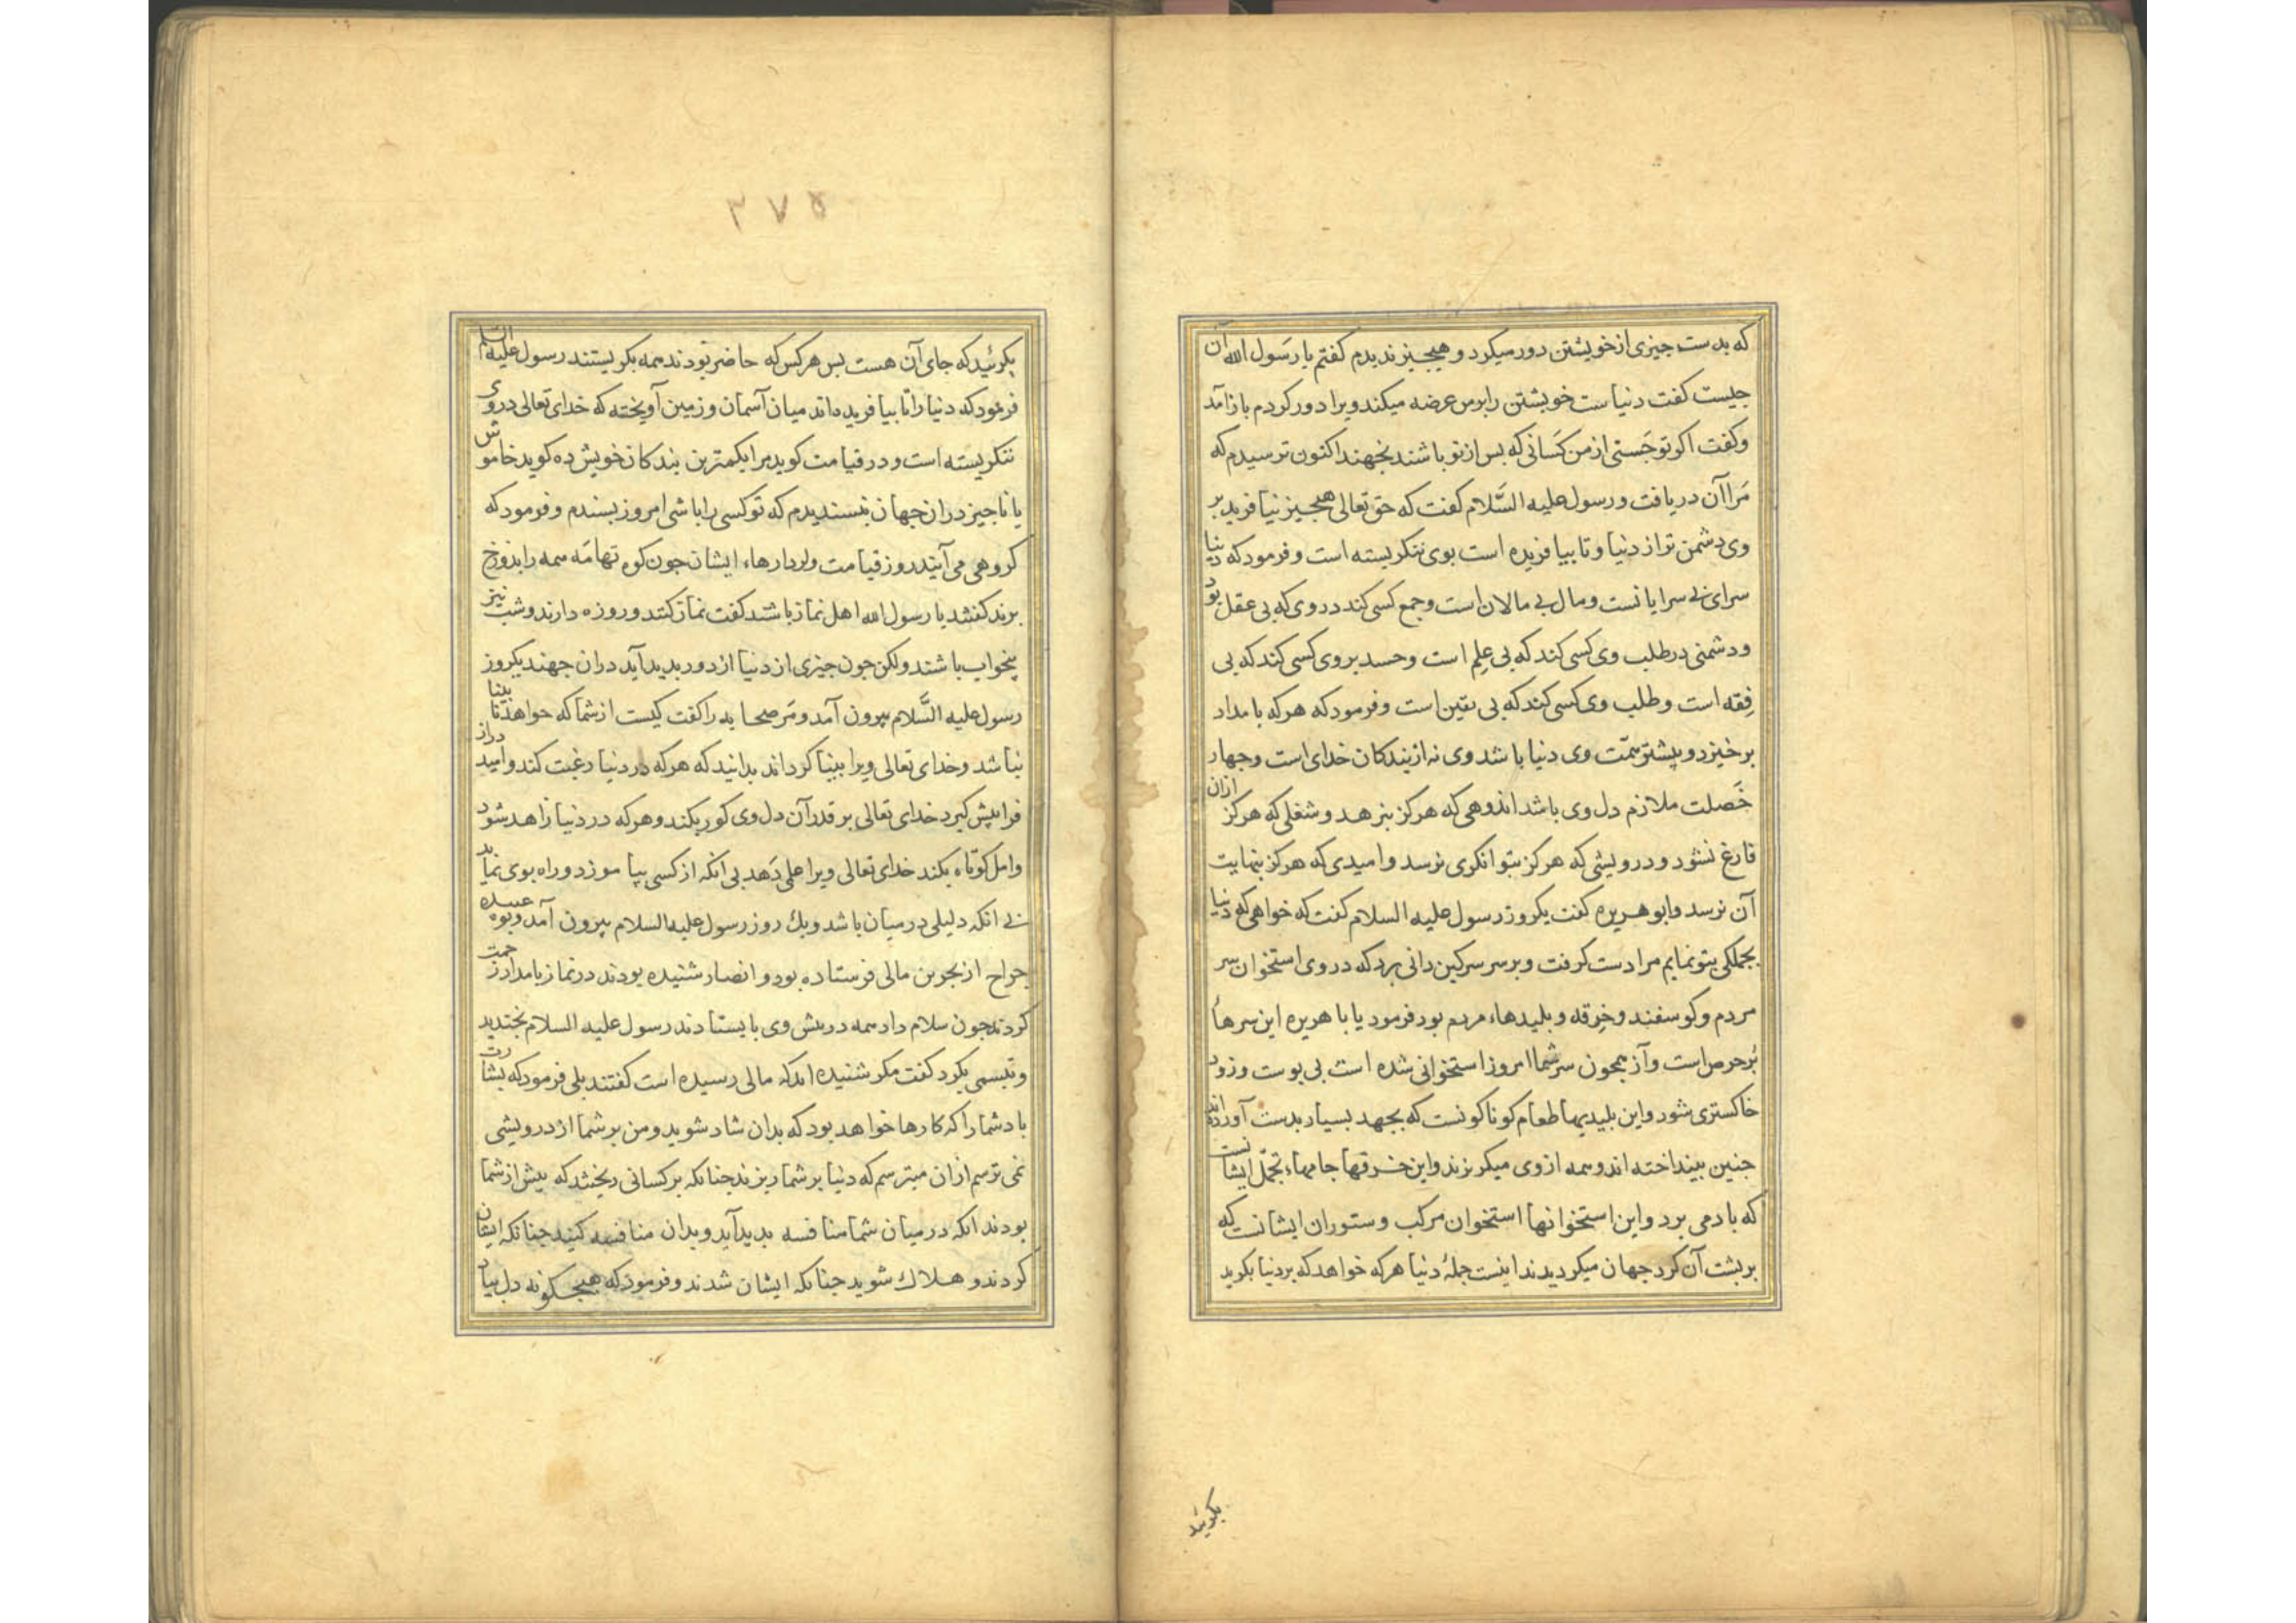 که بدست چیزی از خویشتن دور میکرد و هیچیز ندیدم کفتم یا رسول الله آن
جیست کفت دنیاست خویشتن را بر من عرضه میکند ویرا دور کردم باز آمد
و کفت اکر تو جستی از من کسانی که بس از تو باشند نجهند اکنون ترسیدم که
مرا آن دریافت و رسول علیه السّلام کفت که حق تعالی هیجیز نیافرید بر
وی دشمن تر از دنیا و تا بیافریده است بوی ننکریسته است و فرمود که دنیا
سرای بی سرایانست و مال بی مالان است و جمع کسی کند در وی که بی عقل بود
و دشمنی در طلب وی کسی کند که بی علم است و حسد بر وی کسی کند که بی
فقه است و طلب وی کسی کند که بی یقین است و فرمود که هر که بامداد
برخیزد و بیشتر همّت وی دنیا باشد وی نه از بندکان خدای است و جهار
خصلت ملازم دل وی باشد اندوهی که هرکز نبرهد و شغلی که هرکز ازان
فارغ نشود و درویشی که هرکز بتوانکری نرسد و امیدی که هرکز بنهایت
آن نرسد و ابوهریره کفت یکروز رسول علیه السلام کفت که خواهی که دنیا
بجملکی بتو نمایم مرا دست کرفت و بر سر سرکین دانی برد که در وی استخوان سر
مردم و کوسفند و خرقه و بلیدهاء مردم بود فرمود یا باهریره این سرهاٴ
بر حرص است و آز همجون سر شما امروز استخوانی شده است بی بوست و زود
خاکستری شود و این بلیدیها طعام کوناکونست که بجهد بسیار بدست آورده اند
جنین بینداخته اند و همه از وی میکریزند و این خرقها جامهاء تجمّل ایشانست
که باد می برد و این استخوانها استخوان مرکب و ستوران ایشانست که
بر بشت آن کرد جهان میکردیدند اینست جملهٴ دنیا هر که خواهد که بر دنیا بکرید
بکرئید
۳۷۵
بکرئید که جای آن هست بس هر کس که حاضر بودند همه بکریستند رسول علیه السلم
فرمود که دنیا را تا بیافریده اند میان آسمان و زمین آویخته که خدای تعالی در وی
ننکریسته است و در قیامت کوید مرا بکمترین بندکان خویش ده کوید خاموش
یا ناجیز در ان جهان نبسندیدم که تو کسی را باشی امروز بسندم و فرمود که
کروهی می آیند روز قیامت و کردارهاء ایشان جون کوه تهامه همه را بدوزخ
برند کفتند یا رسول الله اهل نماز باشند کفت نماز کنند و روزه دارند و شب نیز
بیخواب باشند ولکن جون جیزی از دنیا از دور بدید آید دران جهند یکروز
رسول علیه السّلام بیرون آمد و مر صحابه را کفت کیست از شما که خواهد نابینا
نباشد و خدای تعالی ویرا بینا کرداند بدانید که هر که در دنیا رغبت کند و امید دراز
فرا پیش کیرد خدای تعالی بر قدر آن دل وی کور بکند و هر که در دنیا زاهد شود
و امل کوتاه بکند خدای تعالی ویرا علمی دهد بی آنکه از کسی بیاموزد و راه بوی نماید
بی آنکه دلیلی در میان باشد و یک روز رسول علیه السلام بیرون آمد و بوعبیده
جراح از بحرین مالی فرستاده بود و انصار شنیده بودند در نماز بامداد زحمت
کردند جون سلام داد همه در پیش وی بایستادند رسول علیه السلام بخندید
و تبسمی بکرد کفت مکر شنیده اید که مالی رسیده است کفتند بلی فرمود که بشارت
باد شما را که کارها خواهد بود که بدان شاد شوید و من بر شما از درویشی
نمی ترسم ازان میترسم که دنیا بر شما ریزند جنانکه بر کسانی ریختند که پیش از شما
بودند آنکه در میان شما منافسه بدید آید و بدان منافسه کنید جنانکه ایشان
کردند و هلاک شوید جنانکه ایشان شدند و فرمود که هیجکونه دل بیاد